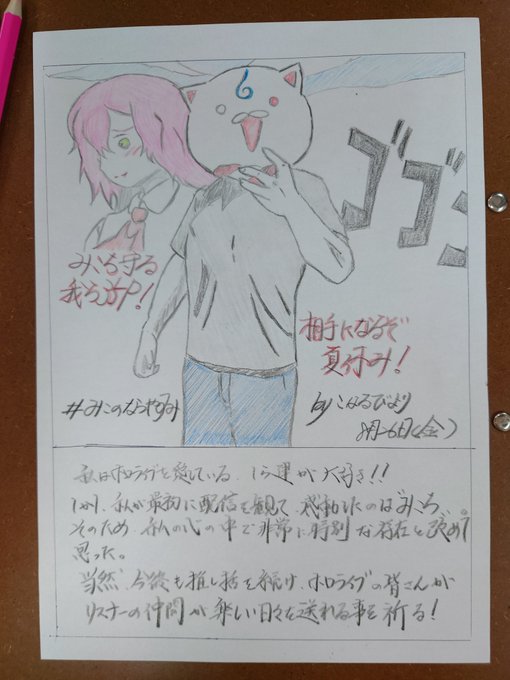 ゴゴゴ
みこち守る
我ら35P!
相手になるぞ
夏休み!
#みこのなつやすみ
by こはるびより
8月26日(金)
私はホロライブを愛している、
大好き!!
しかし、私が最初に配信を観て、感動したのはみこち。
そのため、私の心の中で非常に特別な存在と改めて
思った。
当然、今後も推し活を続け、ホロライブの皆さんが
リスナーの仲間が楽しい日々を送れる事を祈る!